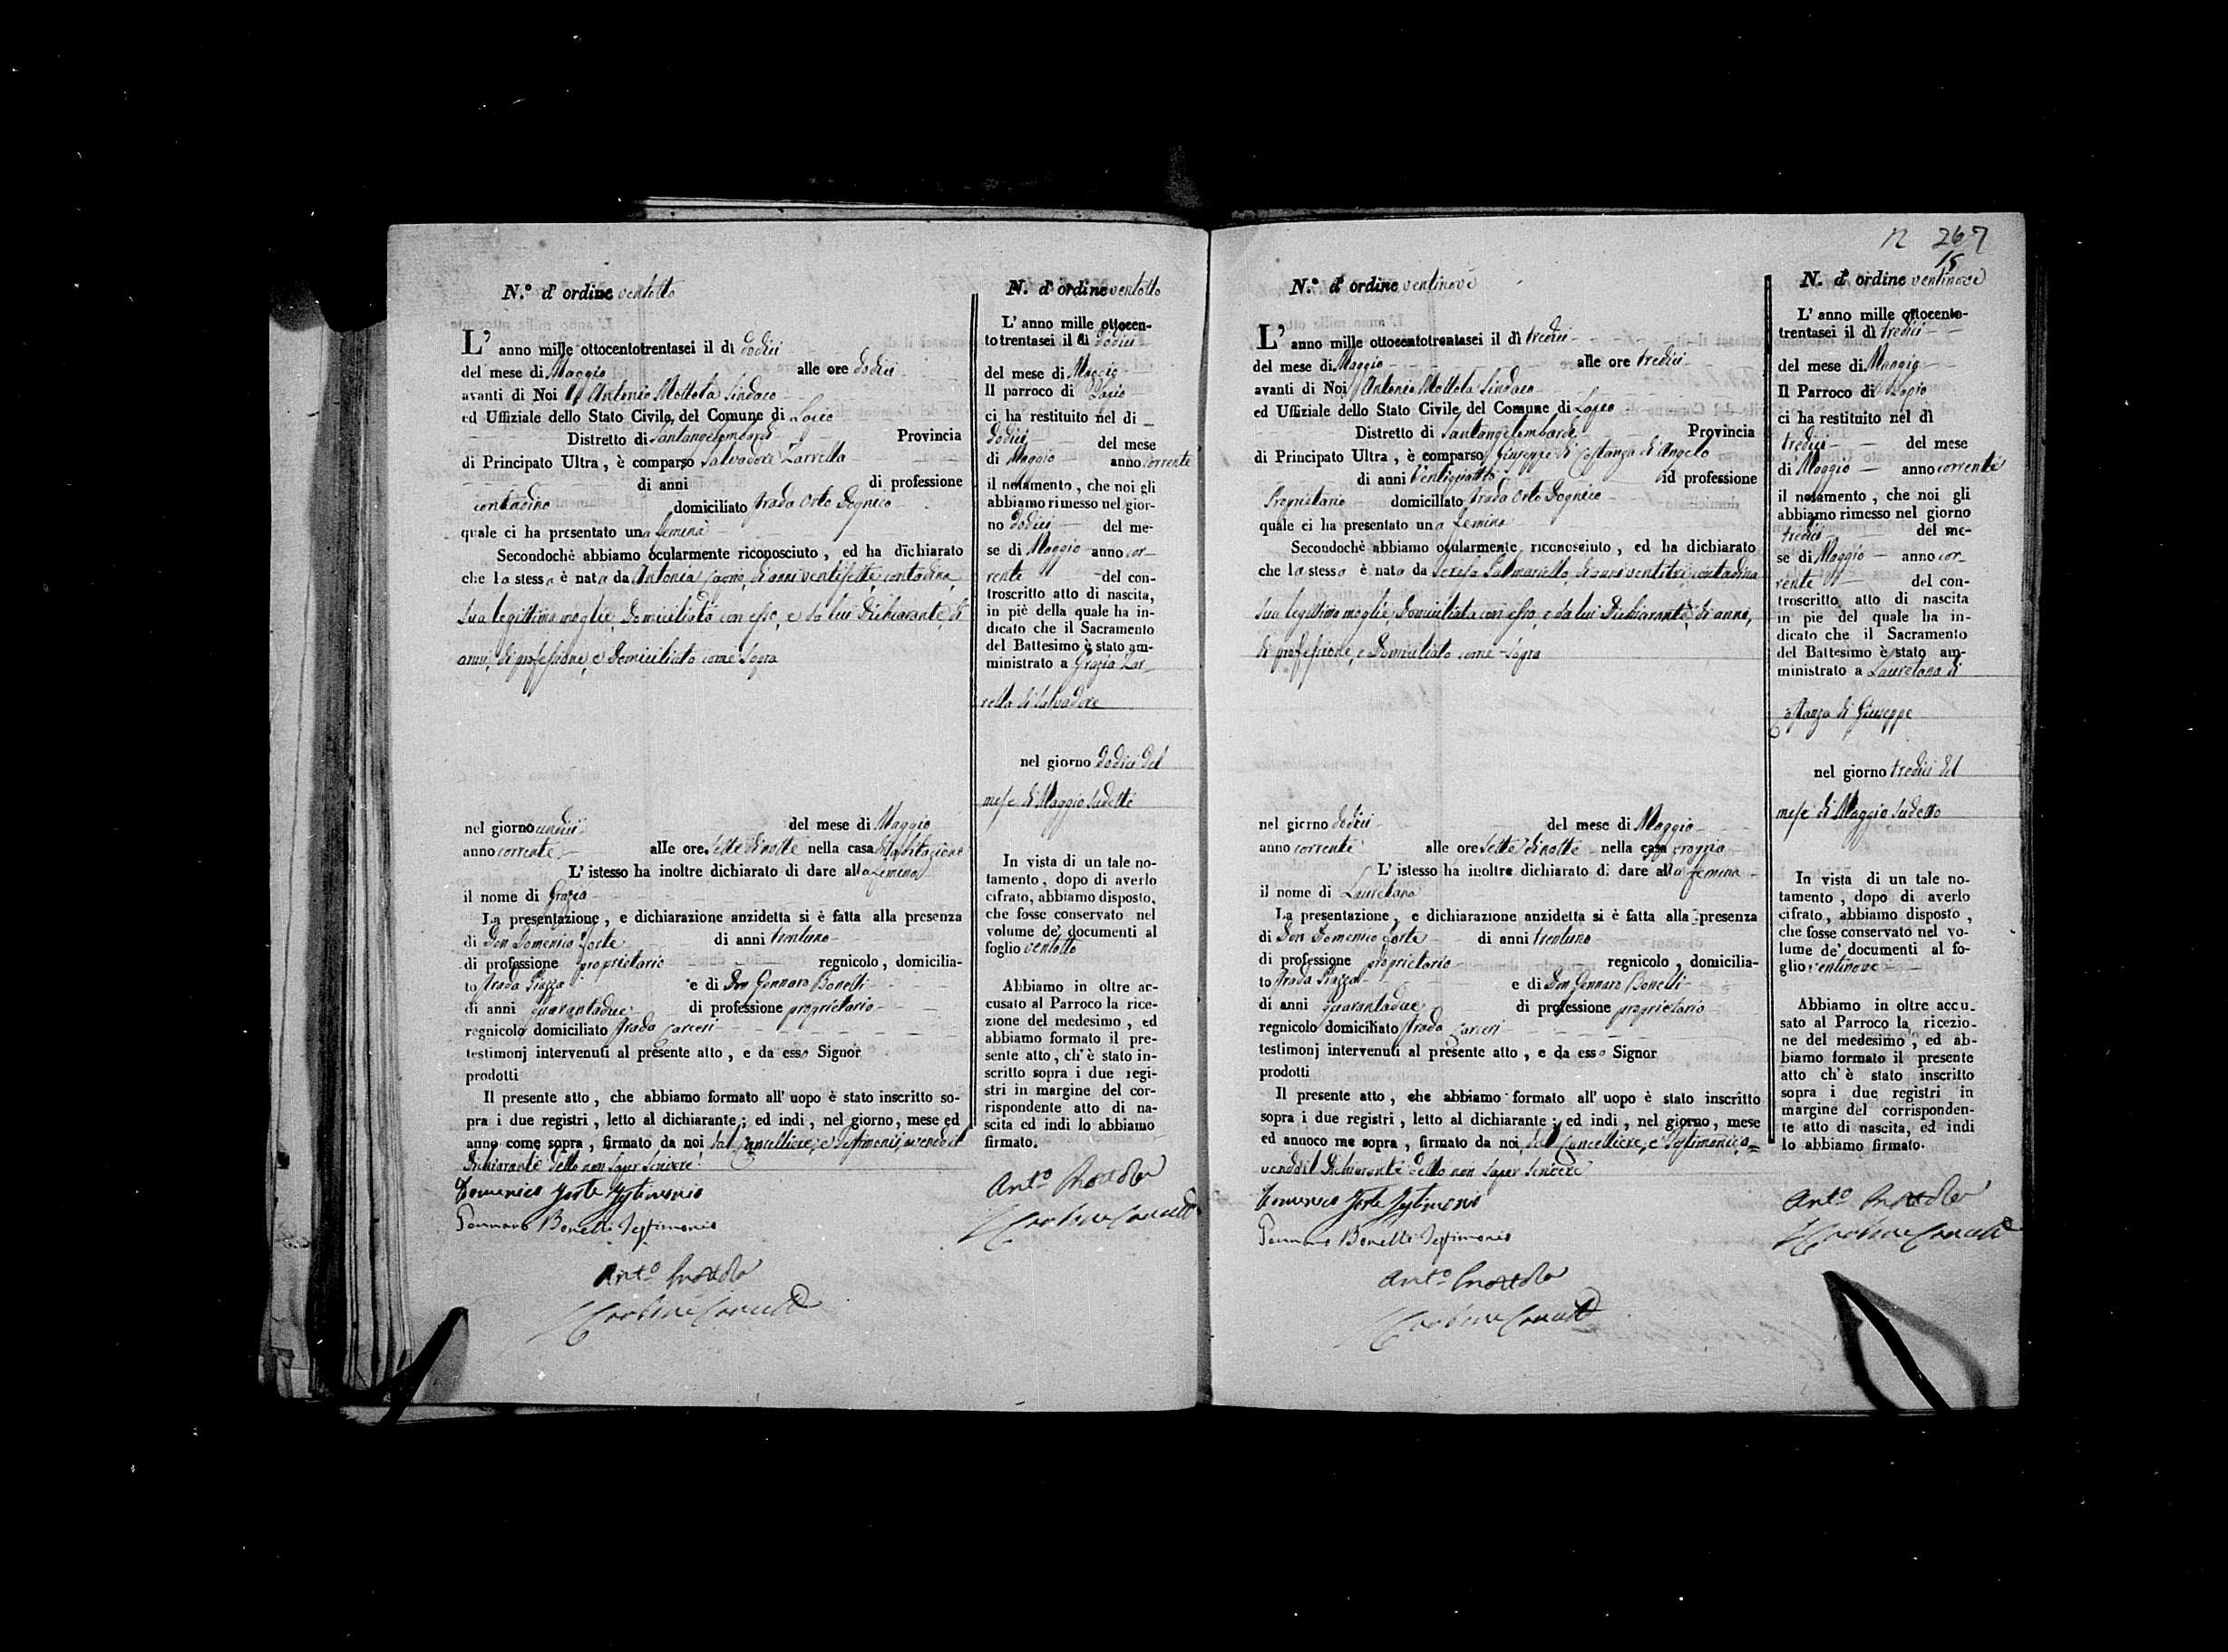 N.º d' ordine ventotto
L' anno mille ottocentotrentasei il dì dodici
del mese di Maggio alle ore dodici
avanti di Noi Antonio Mottola Sindaco
ed Uffiziale dello Stato Civile del Comune di Lapio
Distretto di Santangelombardi Provincia
di Principato Ultra, è comparso Salvadore Zarrella
di anni di professione
contadino domiciliato strada Orto Dognico
quale ci ha presentato una femina
Secondochè abbiamo ocularmente riconosciuto, ed ha dichiarato
che la stessa è nata da Antonia di anni ventisette contadina
sua legittima moglie, domiciliata con esso, e da lui Dichiarante, di
anni, di professione, e Domiciliato come sopra
nel giorno undici del mese di Maggio
anno corrente alle ore sette di notte nella casa d'abitazione
L' istesso ha inoltre dichiarato di dare alla femina
il nome di Grazia
La presentazione, e dichiarazione anzidetta si è fatta alla presenza
di Don Domenico Forte di anni trentuno
di professione proprietario regnicolo, domicilia-
to strada Piazza e di Don Gennaro Bonelli
di anni quarantadue di professione proprietario
regnicolo domiciliato strada Carceri
testimonj intervenuti al presente atto, e da esso Signor
prodotti
Il presente atto, che abbiamo formato all' uopo è stato inscritto so-
pra i due registri, letto al dichiarante; ed indi, nel giorno, mese ed
anno come sopra, firmato da noi, dal Cancelliere, e Testimonij, avendo il
dichiarante detto non saper scrivere
Domenico Forte Testimonio
Gennaro Bonelli Testimonio
Ant.º Mottola
N. d' ordine ventotto
L' anno mille ottocen-
totrentasei il dì dodici
del mese di Maggio
Il parroco di Lapio
ci ha restituito nel di
dodici del mese
di Maggio anno corrente
il notamento, che noi gli
abbiamo rimesso nel gior-
no dodici del me-
se di Maggio anno cor-
rente del con-
troscritto atto di nascita,
in piè della quale ha in-
dicato che il Sacramento
del Battesimo è stato am-
ministrato a Grazia Zar-
rella di Salvadore
nel giorno dodici del
mese di Maggio sudetto
In vista di un tale no-
tamento, dopo di averlo
cifrato, abbiamo disposto,
che fosse conservato nel
volume de' documenti al
foglio ventotto
Abbiamo in oltre ac-
cusato al Parroco la rice-
zione del medesimo, ed
abbiamo formato il pre-
sente atto, ch' è stato in-
scritto sopra i due regi-
stri in margine del cor-
rispondente atto di na-
scita ed indi lo abbiamo
firmato.
Ant.º Mottola
n 267
15
N.º d' ordine ventinove
L' anno mille ottocentotrentasei il dì tredici
del mese di Maggio alle ore tredici
avanti di Noi Antonio Mottola Sindaco
ed Uffiziale dello Stato Civile del Comune di Lapio
Distretto di Santangelombardi Provincia
di Principato Ultra, è comparso Giuseppe di Costanza di Angelo
di anni ventiquattro id professione
Proprietario domiciliato strada Orto Dognico
quale ci ha presentato una femina
Secondochè abbiamo ocularmente riconosciuto, ed ha dichiarato
che la stessa è nata da Teresa Palmariello, di anni ventitre, contadina
sua legittima moglie, Domiciliata con esso, e da lui Dichiarante, di anni,
di professione, e Domiciliato come sopra
nel giorno dodici del mese di Maggio
anno corrente alle ore sette di notte nella casa propria
L' istesso ha inoltre dichiarato di dare alla femina
il nome di Lauretana
La presentazione, e dichiarazione anzidetta si è fatta alla presenza
di Don Domenico Forte di anni trentuno
di professione proprietario regnicolo, domicilia-
to strada Piazza e di Don Gennaro Bonelli
di anni quarantadue di professione proprietario
regnicolo domiciliato strada Carceri
testimonj intervenuti al presente atto, e da esso Signor
prodotti
Il presente atto, che abbiamo formato all' uopo è stato inscritto
sopra i due registri, letto al dichiarante; ed indi, nel giorno, mese
ed annoco me sopra, firmato da noi, dal Cancelliere, e Testimonij, a=
vendo il Dichiarante detto non saper scrivere
Domenico Forte Testimonio
Gennaro Bonelli Testimonio
Ant.º Mottola
N. d' ordine ventinove
L' anno mille ottocento-
trentasei il dì tredici
del mese di Maggio
Il Parroco di Lapio
ci ha restituito nel dì
tredici del mese
di Maggio anno corrente
il notamento, che noi gli
abbiamo rimesso nel giorno
tredici del me-
se di Maggio anno cor-
rente del con-
troscritto atto di nascita
in piè del quale ha in-
dicato che il Sacramento
del Battesimo è stato am-
ministrato a Lauretana di
Costanza di Giuseppe
nel giorno tredici del
mese di Maggio sudetto
In vista di un tale no-
tamento, dopo di averlo
cifrato, abbiamo disposto,
che fosse conservato nel vo-
lume de' documenti al fo-
glio ventinove
Abbiamo in oltre accu-
sato al Parroco la ricezio-
ne del medesimo, ed ab-
biamo formato il presente
atto ch' è stato inscritto
sopra i due registri in
margine del corrisponden-
te atto di nascita, ed indi
lo abbiamo firmato.
Ant.º Mottola